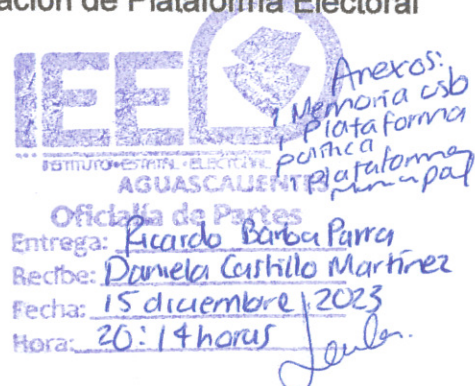 ación de Plataforma Electoral
IEE
INSTITUTO ESTATAL ELECTORAL
AGUASCALIENTES
Oficialía de Partes
Anexos:
1 Memoria usb
1 Plataforma
política
Plataforma
municipal
Entrega: Ricardo Barba Parra
Recibe: Daniela Castillo Martínez
Fecha: 15 diciembre 2023
Hora: 20:14 horas